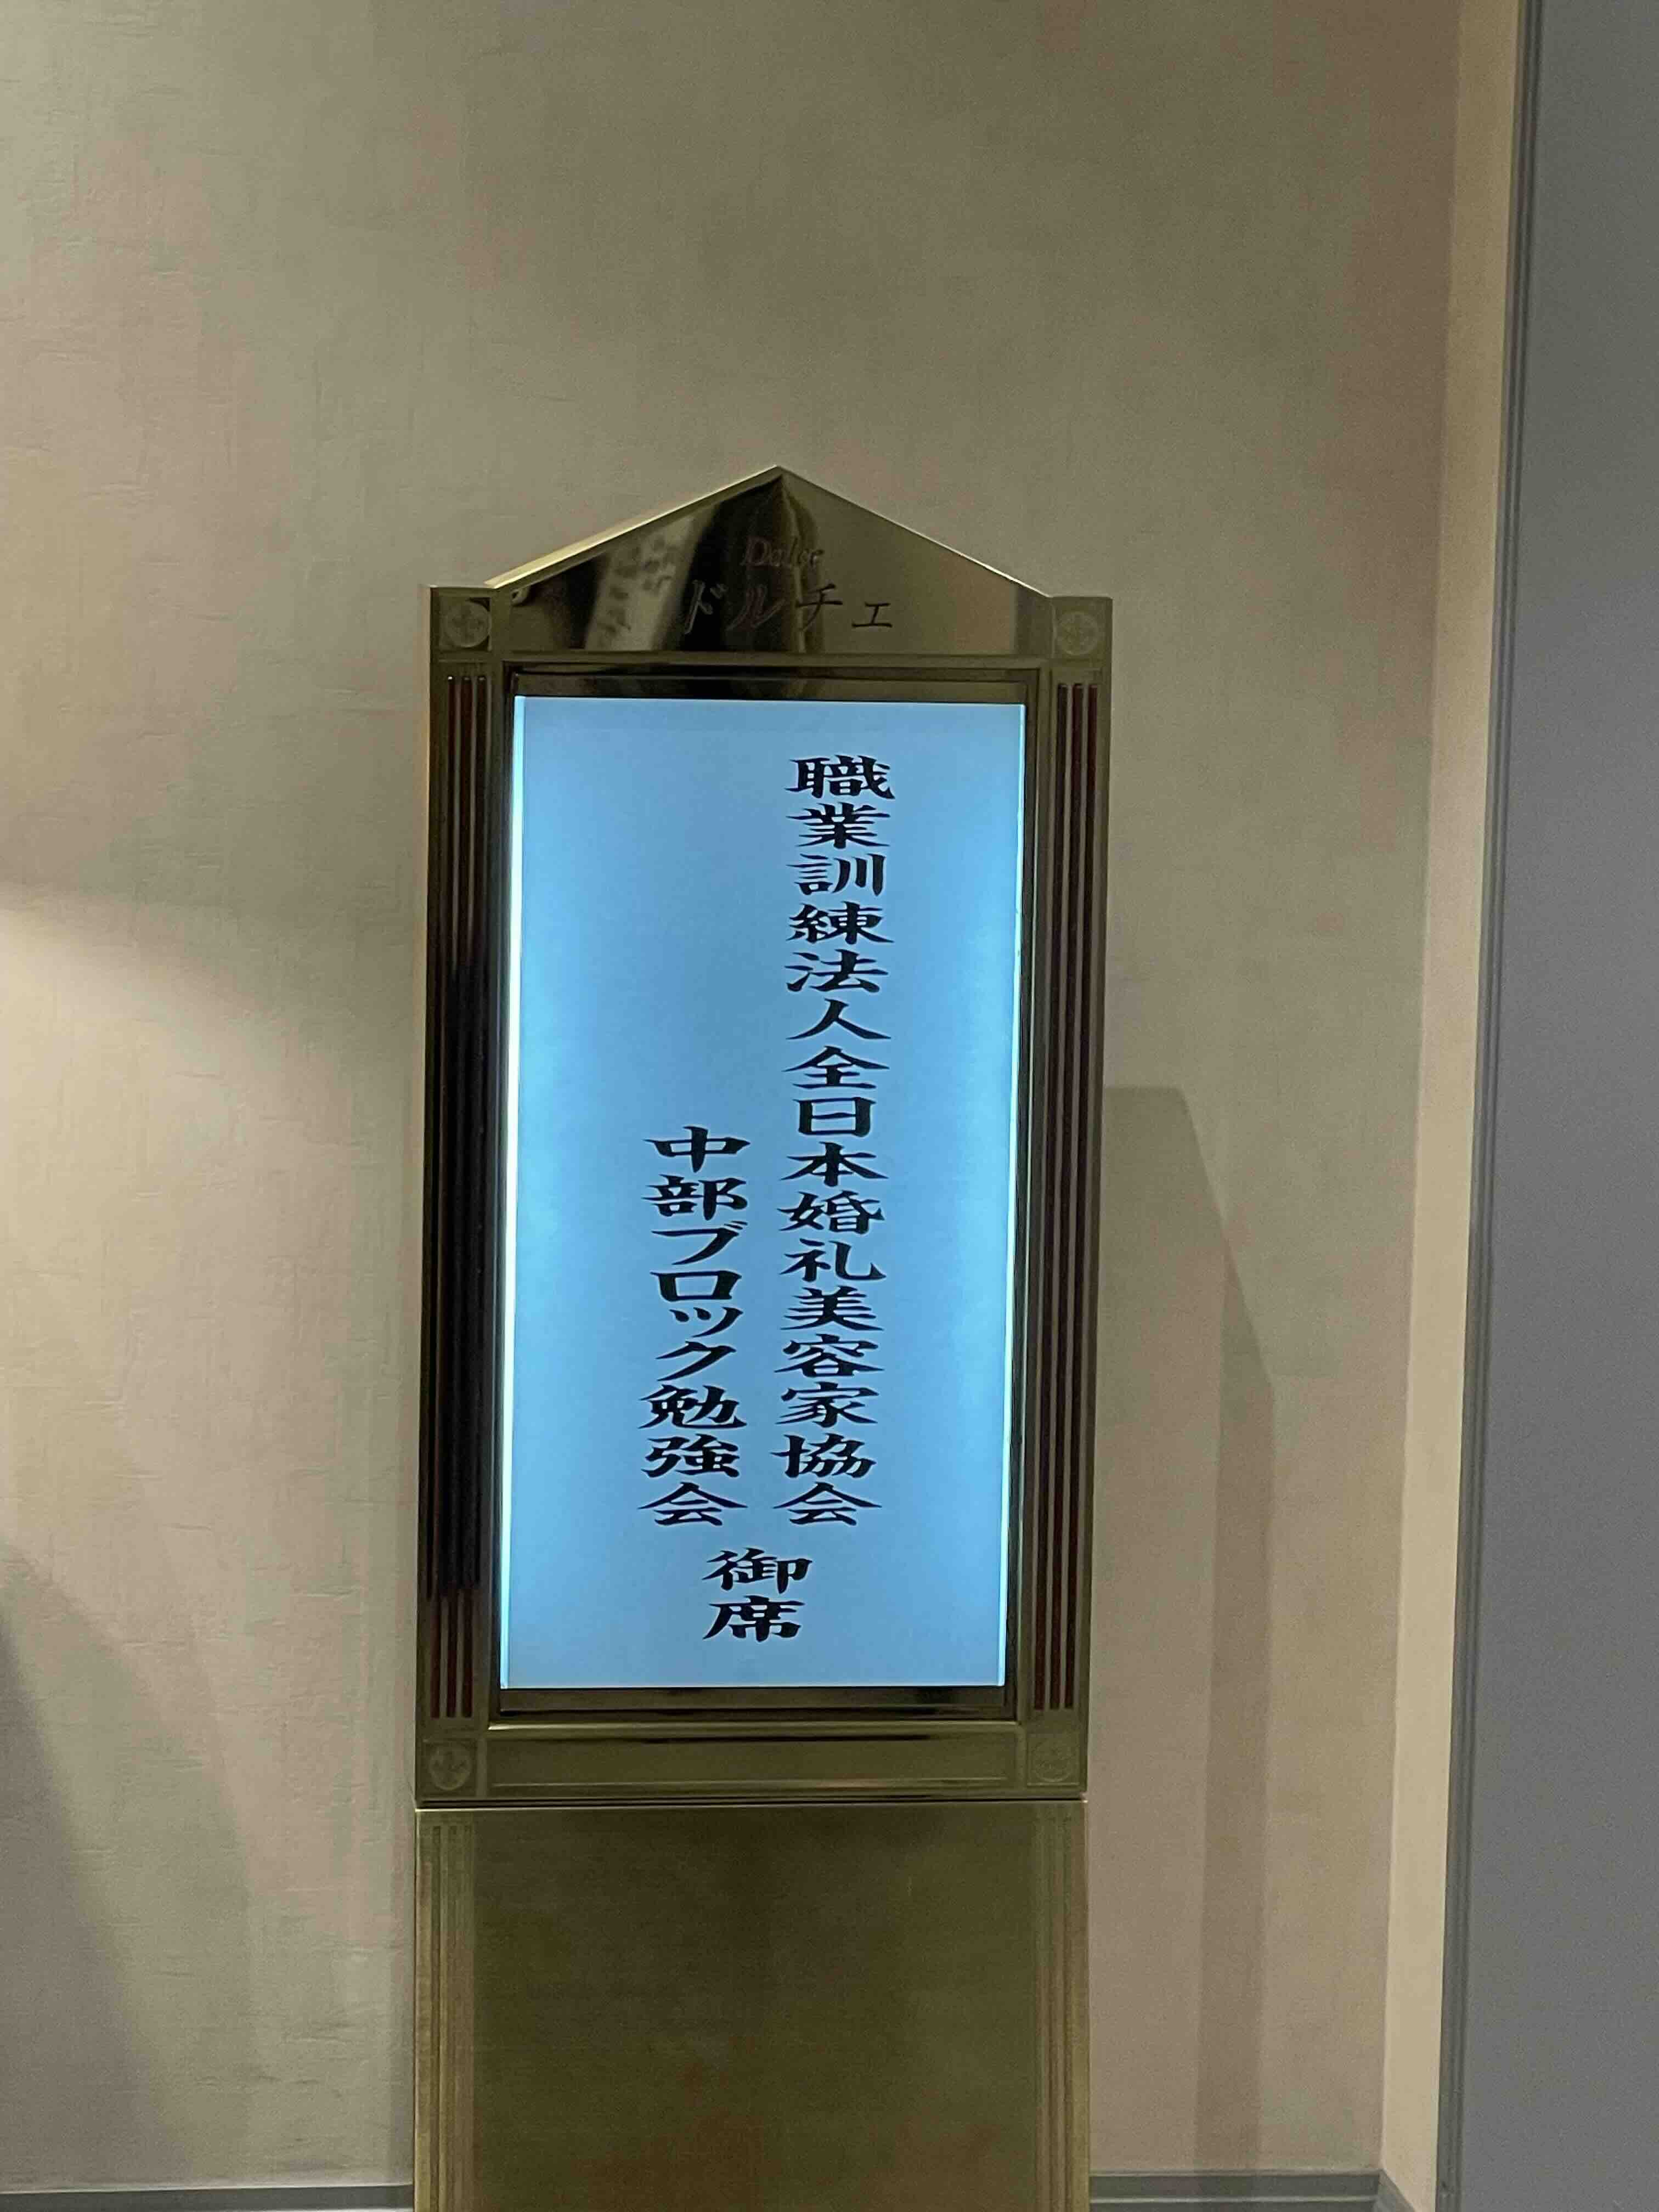 Dolce
ドルチェ
職業訓練法人全日本婚礼美容家協会
中部ブロック勉強会
御席